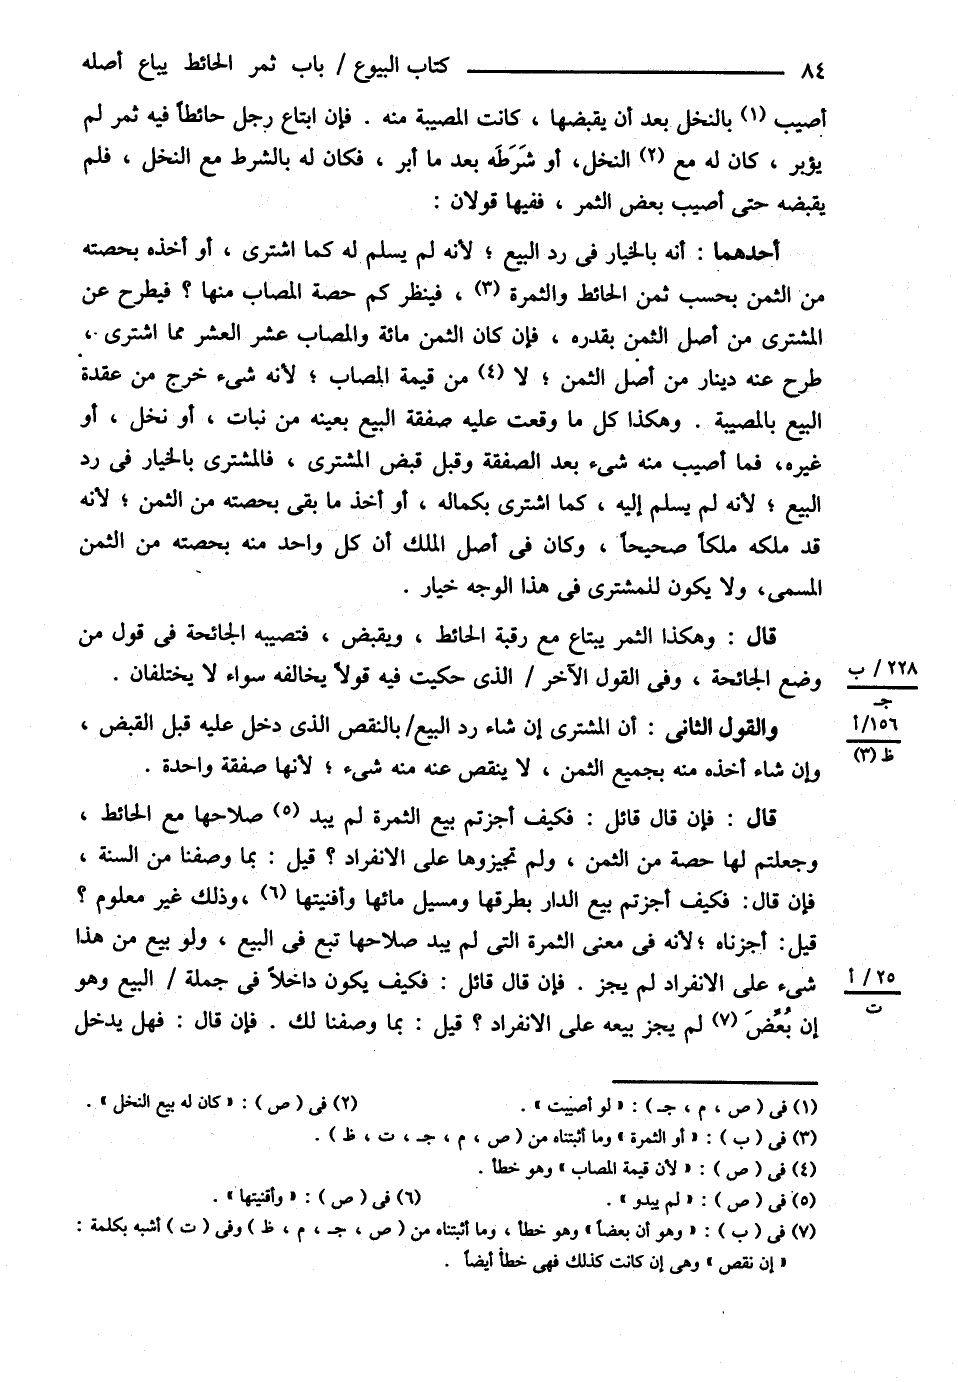 ٨٤ ـــــــــــــ كتاب البيوع / باب ثمر الحائط يباع أصله
أصيب (١) بالنخل بعد أن يقبضها ، كانت المصيبة منه . فإن ابتاع رجل حائطاً فيه ثمر لم
يؤبر ، كان له مع (٢) النخل، أو شَرَطَه بعد ما أبر ، فكان له بالشرط مع النخل ، فلم
يقبضه حتى أصيب بعض الثمر ، ففيها قولان :
أحدهما : أنه بالخيار فى رد البيع ؛ لأنه لم يسلم له كما اشترى ، أو أخذه بحصته
من الثمن بحسب ثمن الحائط والثمرة (٣) ، فينظر كم حصة المصاب منها ؟ فيطرح عن
المشترى من أصل الثمن بقدره ، فإن كان الثمن مائة والمصاب عشر العشر مما اشترى ،
طرح عنه دينار من أصل الثمن ؛ لا (٤) من قيمة المصاب ؛ لأنه شىء خرج من عقدة
البيع بالمصيبة . وهكذا كل ما وقعت عليه صفقة البيع بعينه من نبات ، أو نخل ، أو
غيره، فما أصيب منه شىء بعد الصفقة وقبل قبض المشترى ، فالمشترى بالخيار فى رد
البيع ؛ لأنه لم يسلم إليه ، كما اشترى بكماله ، أو أخذ ما بقى بحصته من الثمن ؛ لأنه
قد ملكه ملكاً صحيحاً ، وكان فى أصل الملك أن كل واحد منه بحصته من الثمن
المسمى، ولا يكون للمشترى فى هذا الوجه خيار .
قال : وهكذا الثمر يبتاع مع رقبة الحائط ، ويقبض ، فتصيبه الجائحة فى قول من
وضع الجائحة ، وفى القول الآخر / الذى حكيت فيه قولاً يخالفه سواء لا يختلفان .
٢٢٨/ ب
جـ
والقول الثانى : أن المشترى إن شاء رد البيع/ بالنقص الذى دخل عليه قبل القبض ،
١٥٦/أ
ظ (٣)
وإن شاء أخذه منه بجميع الثمن ، لا ينقص عنه منه شىء ؛ لأنها صفقة واحدة .
قال : فإن قال قائل : فكيف أجزتم بيع الثمرة لم يبد (٥) صلاحها مع الحائط ،
وجعلتم لها حصة من الثمن ، ولم تجيزوها على الانفراد ؟ قيل : بما وصفنا من السنة ،
فإن قال: فكيف أجزتم بيع الدار بطرقها ومسيل مائها وأفنيتها (٦) ،وذلك غير معلوم ؟
قيل: أجزناه ؛لأنه فى معنى الثمرة التى لم يبد صلاحها تبع فى البيع ، ولو بيع من هذا
شىء على الانفراد لم يجز . فإن قال قائل : فكيف يكون داخلاً فى جملة / البيع وهو
٢٥/ أ
ت
إن بُعِّضَ (٧) لم يجز بيعه على الانفراد ؟ قيل : بما وصفنا لك . فإن قال : فهل يدخل
(١) فى ( ص ، م ، جـ ) : « لو أصيبت » .
(٢) فى ( ص ) : « كان له بيع النخل » .
(٣) فى ( ب ) : « أو الثمرة » وما أثبتناه من ( ص ، م ، جـ ، ت ، ظ ) .
(٤) فى ( ص ) : « لأن قيمة المصاب » وهو خطأ .
(٥) فى ( ص ) : « لم يبدو » .
(٦) فى ( ص ) : « وأقنيتها » .
(٧) فى ( ب ) : « وهو أن بعضاً » وهو خطأ ، وما أثبتناه من ( ص ، جـ ، م ، ظ ) وفى ( ت ) أشبه بكلمة :
« إن نقص » وهى إن كانت كذلك فهى خطأ أيضاً .